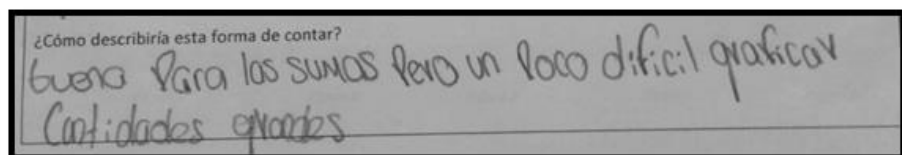 ¿Cómo describiría esta forma de contar?
buena Para las sumas Pero un Poco dificil graficar
Cantidades grandes